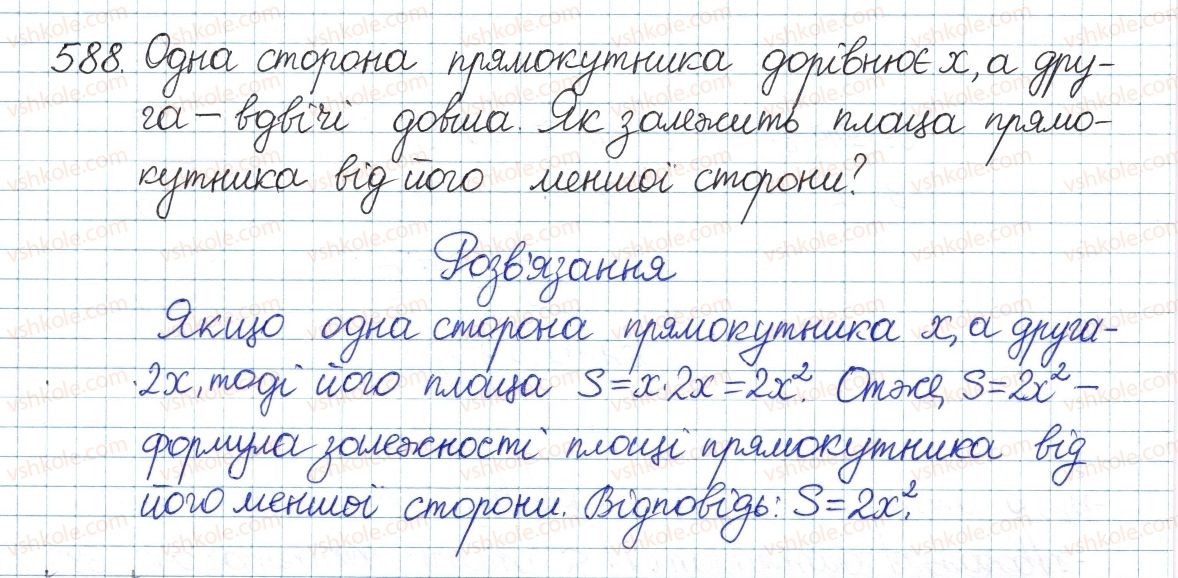 588. Одна сторона прямокутника дорівнює x, а дру-
га – вдвічі довша. Як залежить площа прямо-
кутника від його меншої сторони?
Розв'язання
Якщо одна сторона прямокутника x, а друга-
2x, тоді його площа S=x·2x=2x². Отже, S=2x² –
формула залежності площі прямокутника від
його меншої сторони. Відповідь: S=2x².